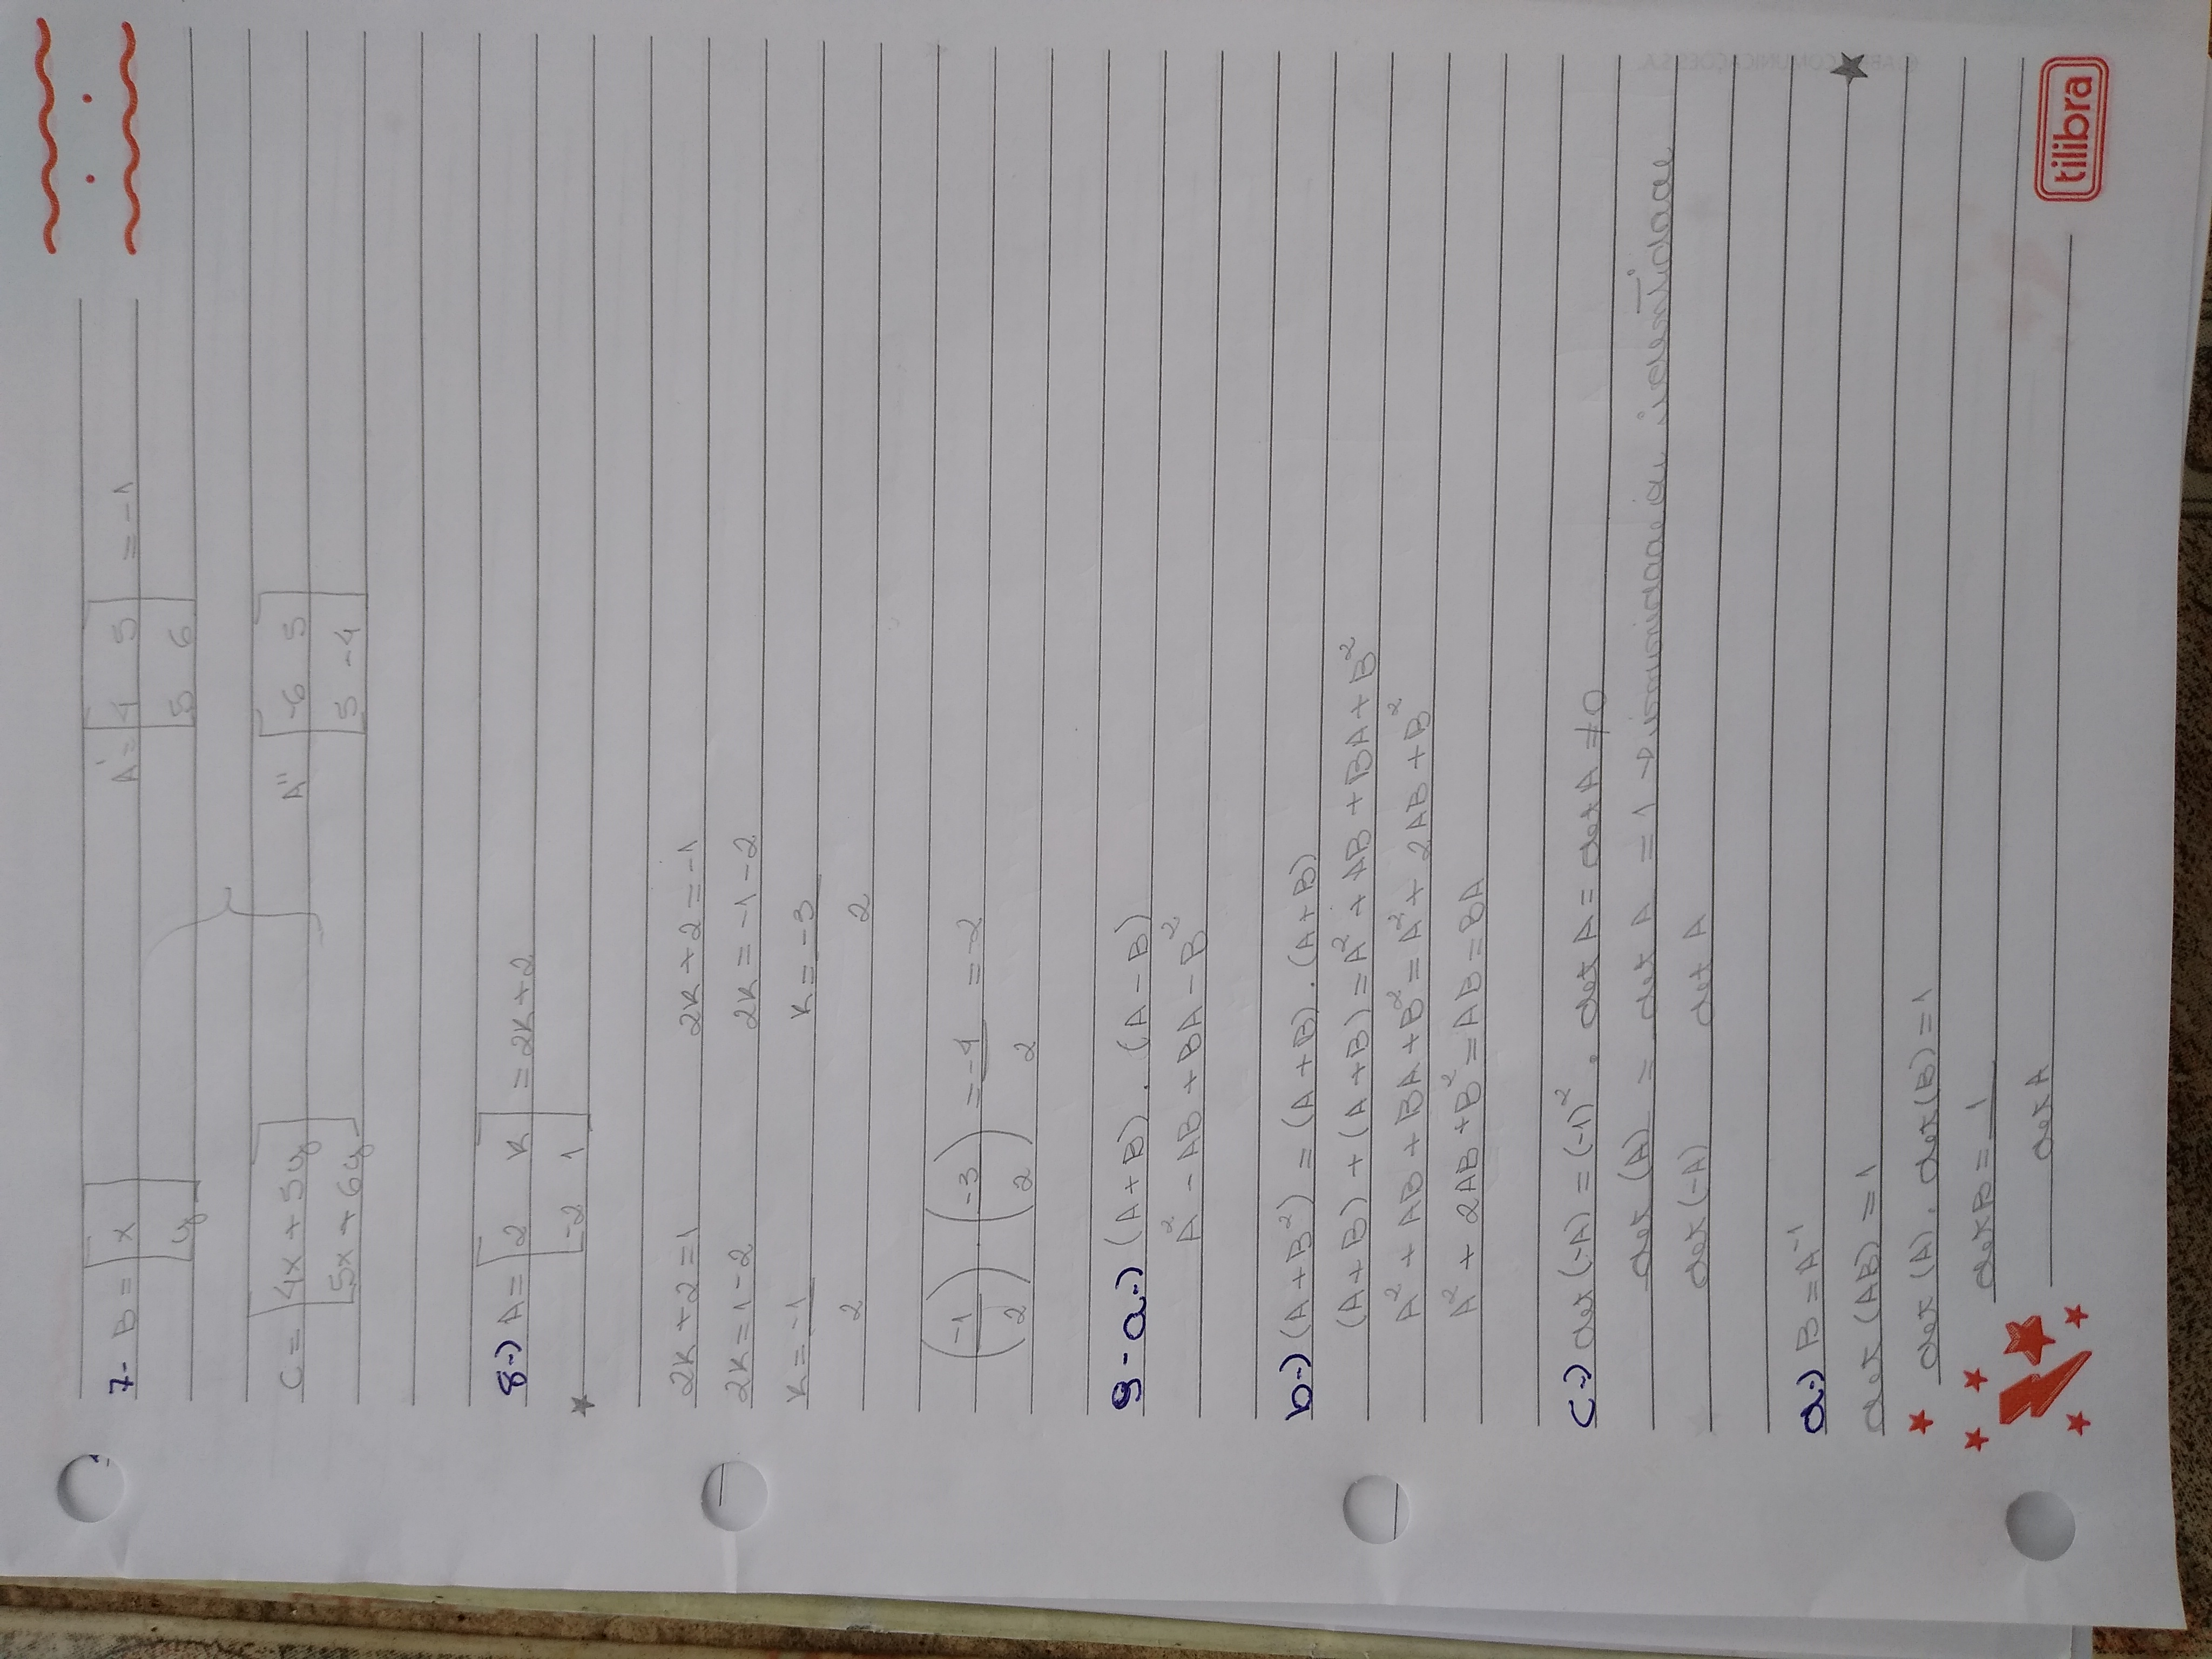 7- B = [x    A' = [4 5    = -1
y]    5 6]
C = [4x + 5y    A'' [-6 5
5x + 6y]    5 -4]
8-) A = [2 k    = 2k + 2
-2 1]
2k + 2 = 1    2k + 2 = -1
2k = 1 - 2    2k = -1 - 2
k = -1    k = -3
2    2
(-1/2) . (-3/2) = -4/2 = -2
9- a-) (A + B) . (A - B)
A² - AB + BA - B²
b-) (A + B²) = (A + B) . (A + B)
(A + B) + (A + B) = A² + AB + BA + B²
A² + AB + BA + B² = A² + 2AB + B²
A² + 2AB + B² = AB = BA
c-) det (-A) = (-1)² . det A = det A ≠ 0
det (A) = det A = 1 → identidade
det (-A)    det A
d-) B = A⁻¹
det (AB) = 1
det (A) . det (B) = 1
det B = 1
det A
tilibra